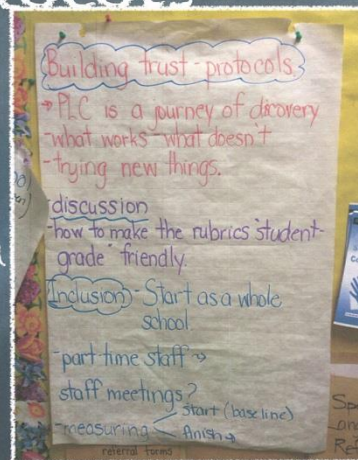 Building trust - protocols.
→ PLC is a journey of discovery
- what works - what doesn't
- trying new things.
discussion
- how to make the rubrics "student-
grade" friendly.
Inclusion - Start as a whole
school.
- part time staff →
staff meetings?
- measuring start (baseline)
finish →
referral forms